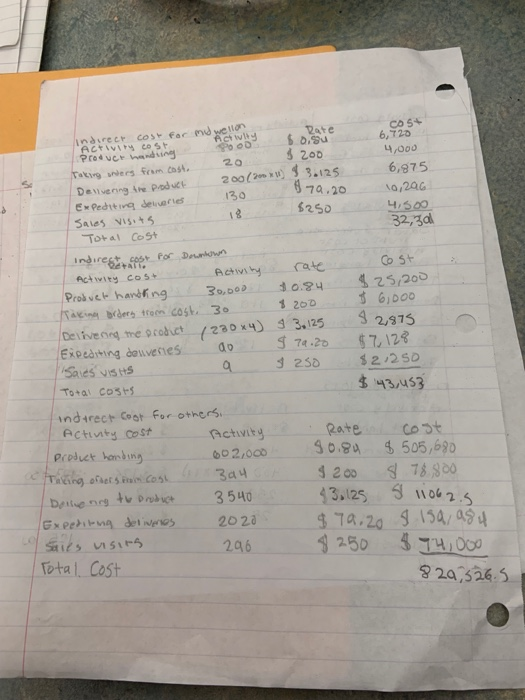 Indirect cost for midwellon
Activity cost Activity Rate cost
Product handling 80.00 $ 0.84 6,720
Taking orders from cost. 20 $ 200 4,000
Delivering the product 200 (200x11) $ 3.125 6,875
Expediting deliveries 130 $ 79.20 10,296
Sales visits 18 $250 4,500
Total cost 32,301
Indirect cost for Downtown
Retail.
Activity cost Activity rate Cost
Product handling 30,000 $0.84 $ 25,200
Taking orders from cost. 30 $ 200 $ 6,000
Delivering the product (230x4) $ 3.125 $ 2,875
Expediting deliveries 90 $ 79.20 $7,128
Sales visits 9 $ 250 $2,250
Total costs $ 43,453
Indirect Cost for others.
Activity cost Activity Rate cost
Product handling 602,000 $0.84 $ 505,680
Taking orders from cost 394 $ 200 $ 78,800
Delivering the product 3540 $3.125 $ 11062.5
Expediting deliveries 2020 $ 79.20 $ 159,984
Sales visits 296 $ 250 $ 74,000
Total Cost 829,526.5